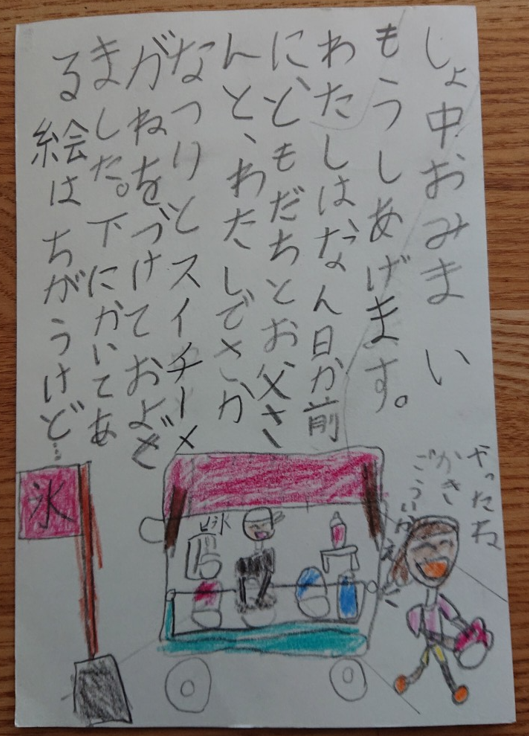 しょ中おみまい
もうしあげます。
わたしはなん日か前
に、ともだちとお父さ
んと、わたしでさか
なつりとスイチーメ
がねをづけておよぎ
ました。下にかいてあ
る絵はちがうけど…
やったね
かき
氷
氷